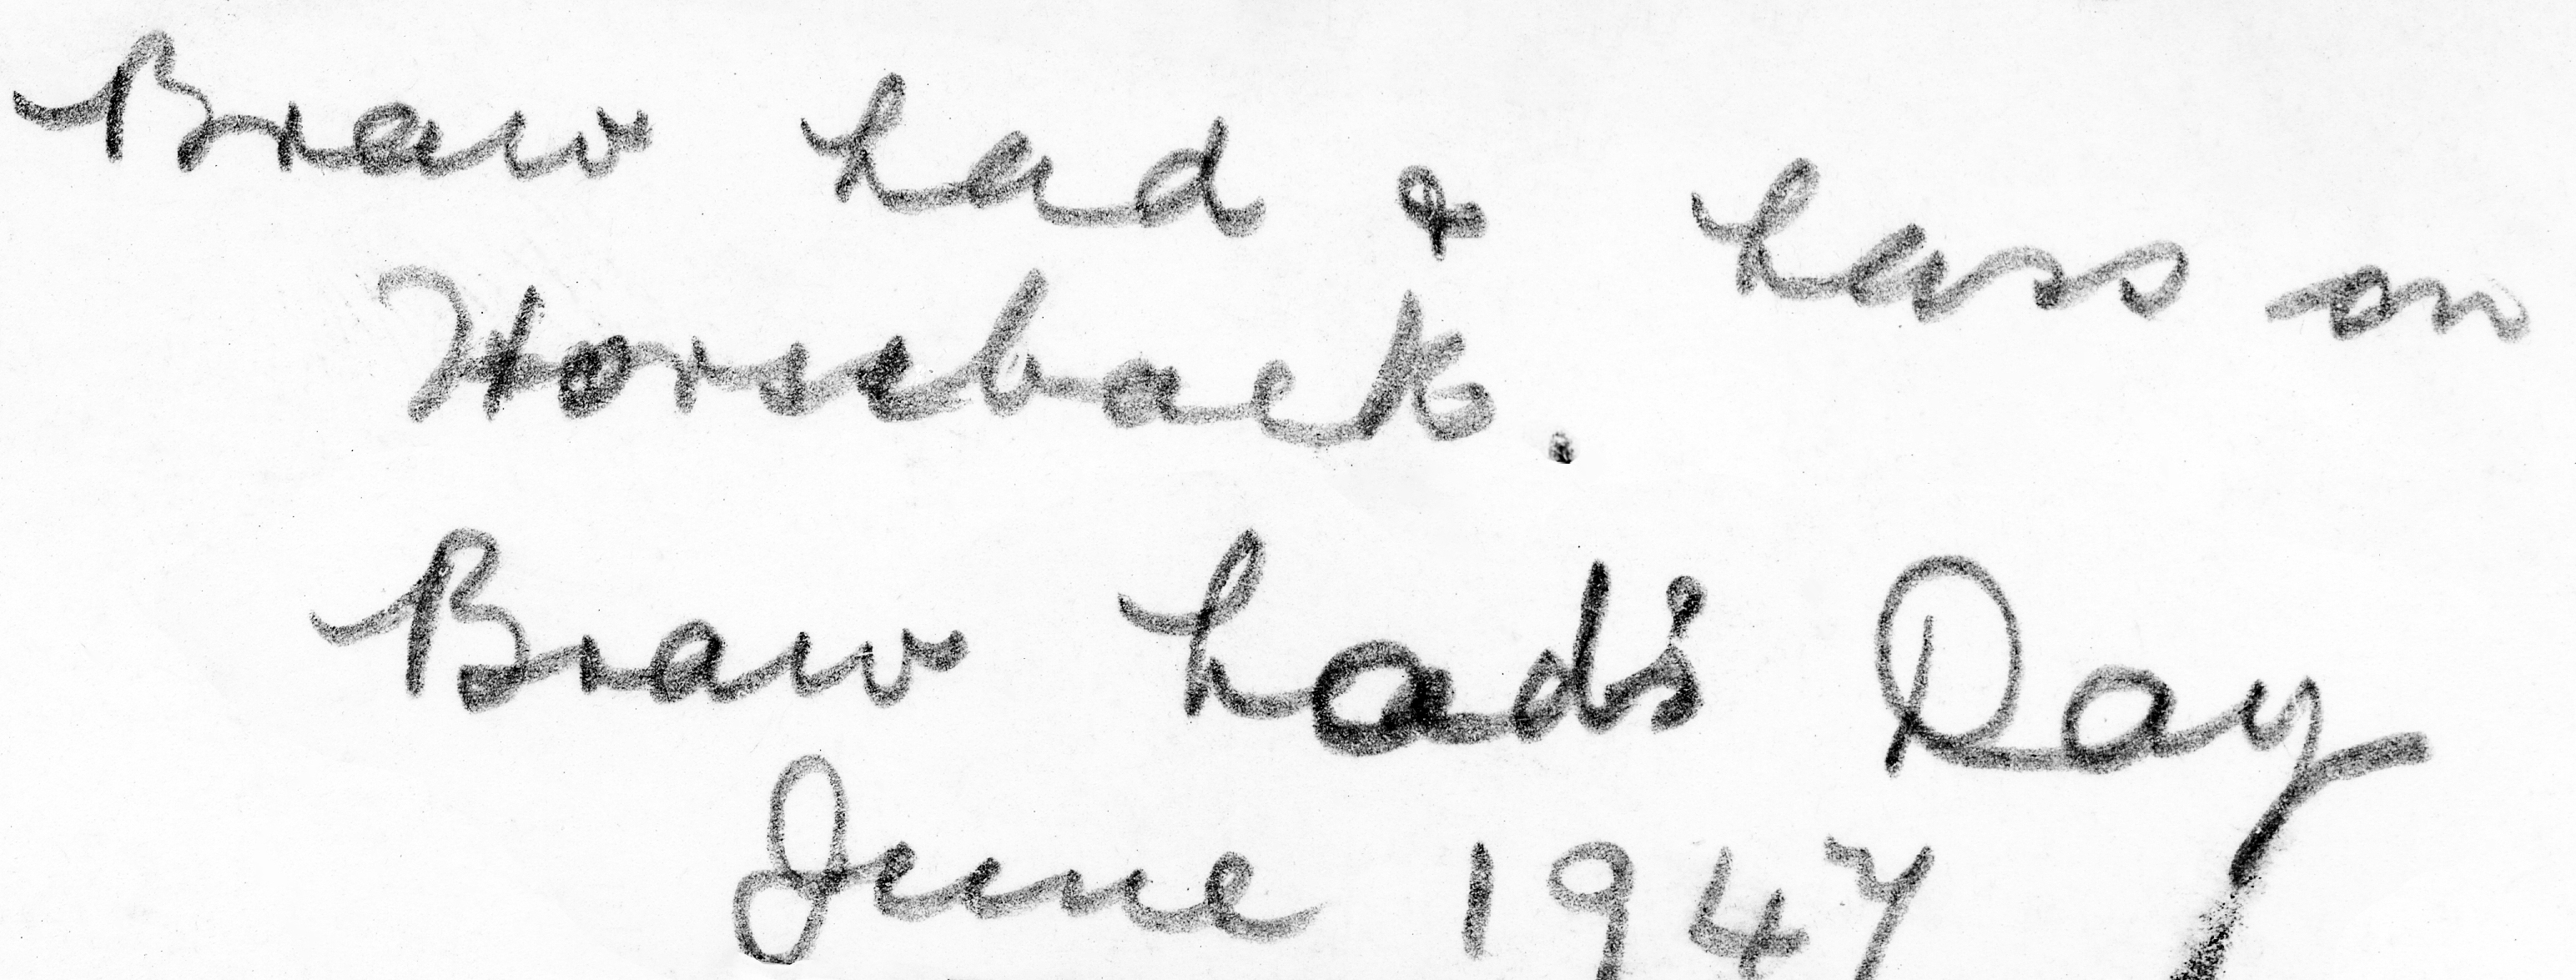 Braw Lad & Lass on
Horseback.
Braw Lad's Day
June 1947